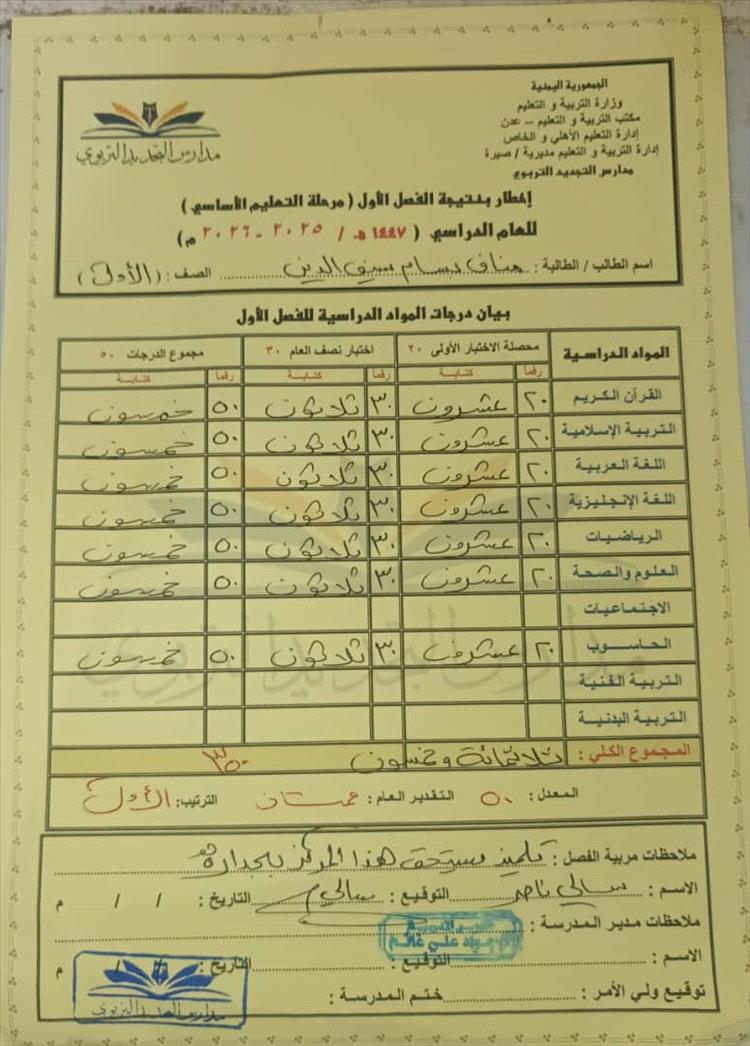 الجمهورية اليمنية
وزارة التربية و التعليم
مكتب التربية و التعليم – عدن
إدارة التعليم الأهلي و الخاص
إدارة التربية و التعليم مديرية / صيرة
مدارس التجديد التربوي
مدارس التجديد التربوي
إخطار بنتيجة الفصل الأول ( مرحلة التعليم الأساسي )
للعام الدراسي ( ١٤٤٧ هـ / ٢٠٢٥ - ٢٠٢٦ م)
اسم الطالب / الطالبة : مناف بسام سيف الدين الصف : (الأول)
بيان درجات المواد الدراسية للفصل الأول
المواد الدراسية محصلة الاختبار الأولى ٢٠ اختبار نصف العام ٣٠ مجموع الدرجات ٥٠
رقما كتابة رقما كتابة رقما كتابة
القرآن الكريم ٢٠ عشرون ٣٠ ثلاثون ٥٠ خمسون
التربية الإسلامية ٢٠ عشرون ٣٠ ثلاثون ٥٠ خمسون
اللغة العربية ٢٠ عشرون ٣٠ ثلاثون ٥٠ خمسون
اللغة الإنجليزية ٢٠ عشرون ٣٠ ثلاثون ٥٠ خمسون
الرياضيات ٢٠ عشرون ٣٠ ثلاثون ٥٠ خمسون
العلوم والصحة ٢٠ عشرون ٣٠ ثلاثون ٥٠ خمسون
الاجتماعيات
الحاسوب ٢٠ عشرون ٣٠ ثلاثون ٥٠ خمسون
التربية الفنية
التربية البدنية
المجموع الكلي : ثلاثمائة وخمسون ٣٥٠
المعدل : ٥٠ التقدير العام : ممتاز الترتيب : الأول
ملاحظات مربية الفصل : تلميذ يستحق هذا المركز بجدارة
الاسم : سالي ناصر التوقيع : سالي التاريخ : / / م
ملاحظات مدير المدرسة :
علي غانم
الاسم : التوقيع : التاريخ : / / م
توقيع ولي الأمر : ختم المدرسة :
مدارس التجديد التربوي